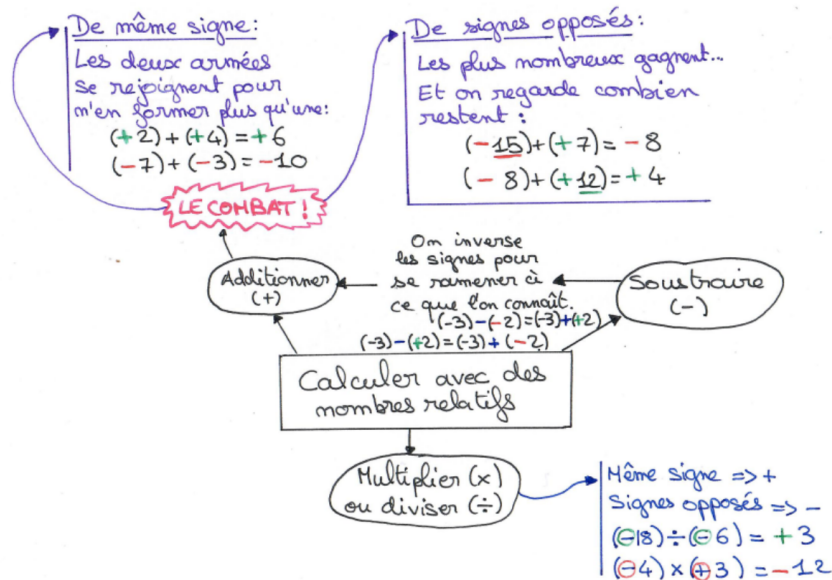 De même signe:
Les deux armées
se rejoignent pour
n'en former plus qu'une:
(+2)+(+4)=+6
(-7)+(-3)=-10
De signes opposés:
Les plus nombreux gagnent...
Et on regarde combien
restent :
(-15)+(+7)=-8
(-8)+(+12)=+4
LE COMBAT !
Additionner
(+)
On inverse
les signes pour
se ramener à
ce que l'on connaît.
(-3)-(-2)=(-3)+(+2)
(-3)-(+2)=(-3)+(-2)
Soustraire
(-)
Calculer avec des
nombres relatifs
Multiplier (x)
ou diviser (÷)
Même signe => +
Signes opposés => -
(-18)÷(-6) = +3
(-4)×(+3) = -12